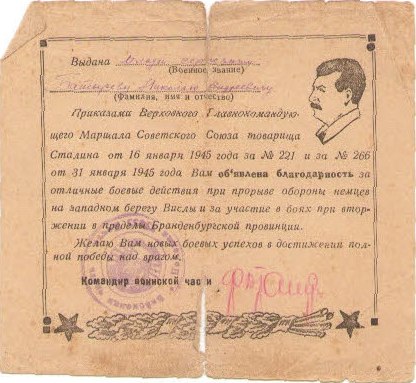 Выдана
(Военное звание)
Николаю Андреевичу
(Фамилия, имя и отчество)
Приказами Верховного Главнокомандую-
щего Маршала Советского Союза товарища
Сталина от 16 январи 1945 года за № 221 и за № 266
от 31 января 1945 года Вам об'явлена благодарность за
отличные боевые действия при прорыве обороны немцев
на западном берегу Вислы и за участие в боях при втор-
жении в пределы Бранденбургской провинции.
Желаю Вам новых боевых успехов в достижении пол-
ной победы над врагом.
Командир воинской час и